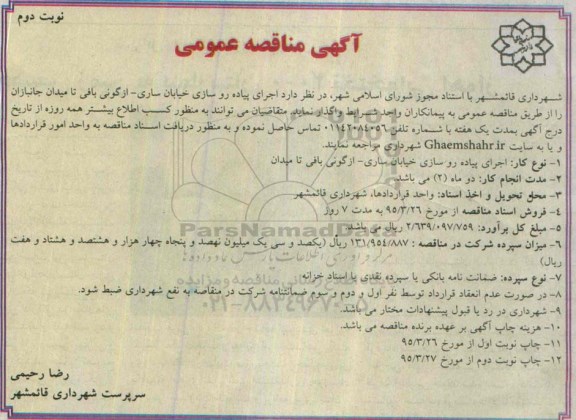 نوبت دوم
آگهی مناقصه عمومی
شهرداری قائمشهر با استناد مجوز شورای اسلامی شهر، در نظر دارد اجرای پیاده رو سازی خیابان ساری- ازگونی بافی تا میدان جانبازان
را از طریق مناقصه عمومی به پیمانکاران واجد شرایط واگذار نماید. متقاضیان می توانند به منظور کسب اطلاع بیشتر همه روزه از تاریخ
درج آگهی بمدت یک هفته با شماره تلفن ۰۱۱۴۲۰۸۴۰۵۶ تماس حاصل نموده و به منظور دریافت اسناد مناقصه به واحد امور قراردادها
و یا به سایت Ghaemshahr.ir شهرداری مراجعه نمایند.
۱- نوع کار: اجرای پیاده رو سازی خیابان ساری- ازگونی بافی تا میدان
۲- مدت انجام کار: دو ماه (۲) می باشد.
۳- محل تحویل و اخذ اسناد: واحد قراردادها، شهرداری قائمشهر
۴- فروش اسناد مناقصه از مورخ ۹۵/۳/۲۶ به مدت ۷ روز
۵- مبلغ کل برآورد: ۲/۶۳۹/۰۹۷/۷۵۹ ریال می باشد.
۶- میزان سپرده شرکت در مناقصه : ۱۳۱/۹۵۴/۸۸۷ ریال (یکصد و سی یک میلیون نهصد و پنجاه چهار هزار و هشتصد و هشتاد و هفت
ریال)
۷- نوع سپرده: ضمانت نامه بانکی یا سپرده نقدی یا اسناد خزانه
۸- در صورت عدم انعقاد قرارداد توسط نفر اول و دوم و سوم ضمانتنامه شرکت در مناقصه به نفع شهرداری ضبط شود.
۹- شهرداری در رد یا قبول پیشنهادات مختار می باشد.
۱۰- هزینه چاپ آگهی بر عهده برنده مناقصه می باشد.
۱۱- چاپ نوبت اول از مورخ ۹۵/۳/۲۶
۱۲- چاپ نوبت دوم از مورخ ۹۵/۳/۲۷
رضا رحیمی
سرپرست شهرداری قائمشهر
ParsNamadData
۰۲۱-۸۸۳۴۹۶۷۰-۵